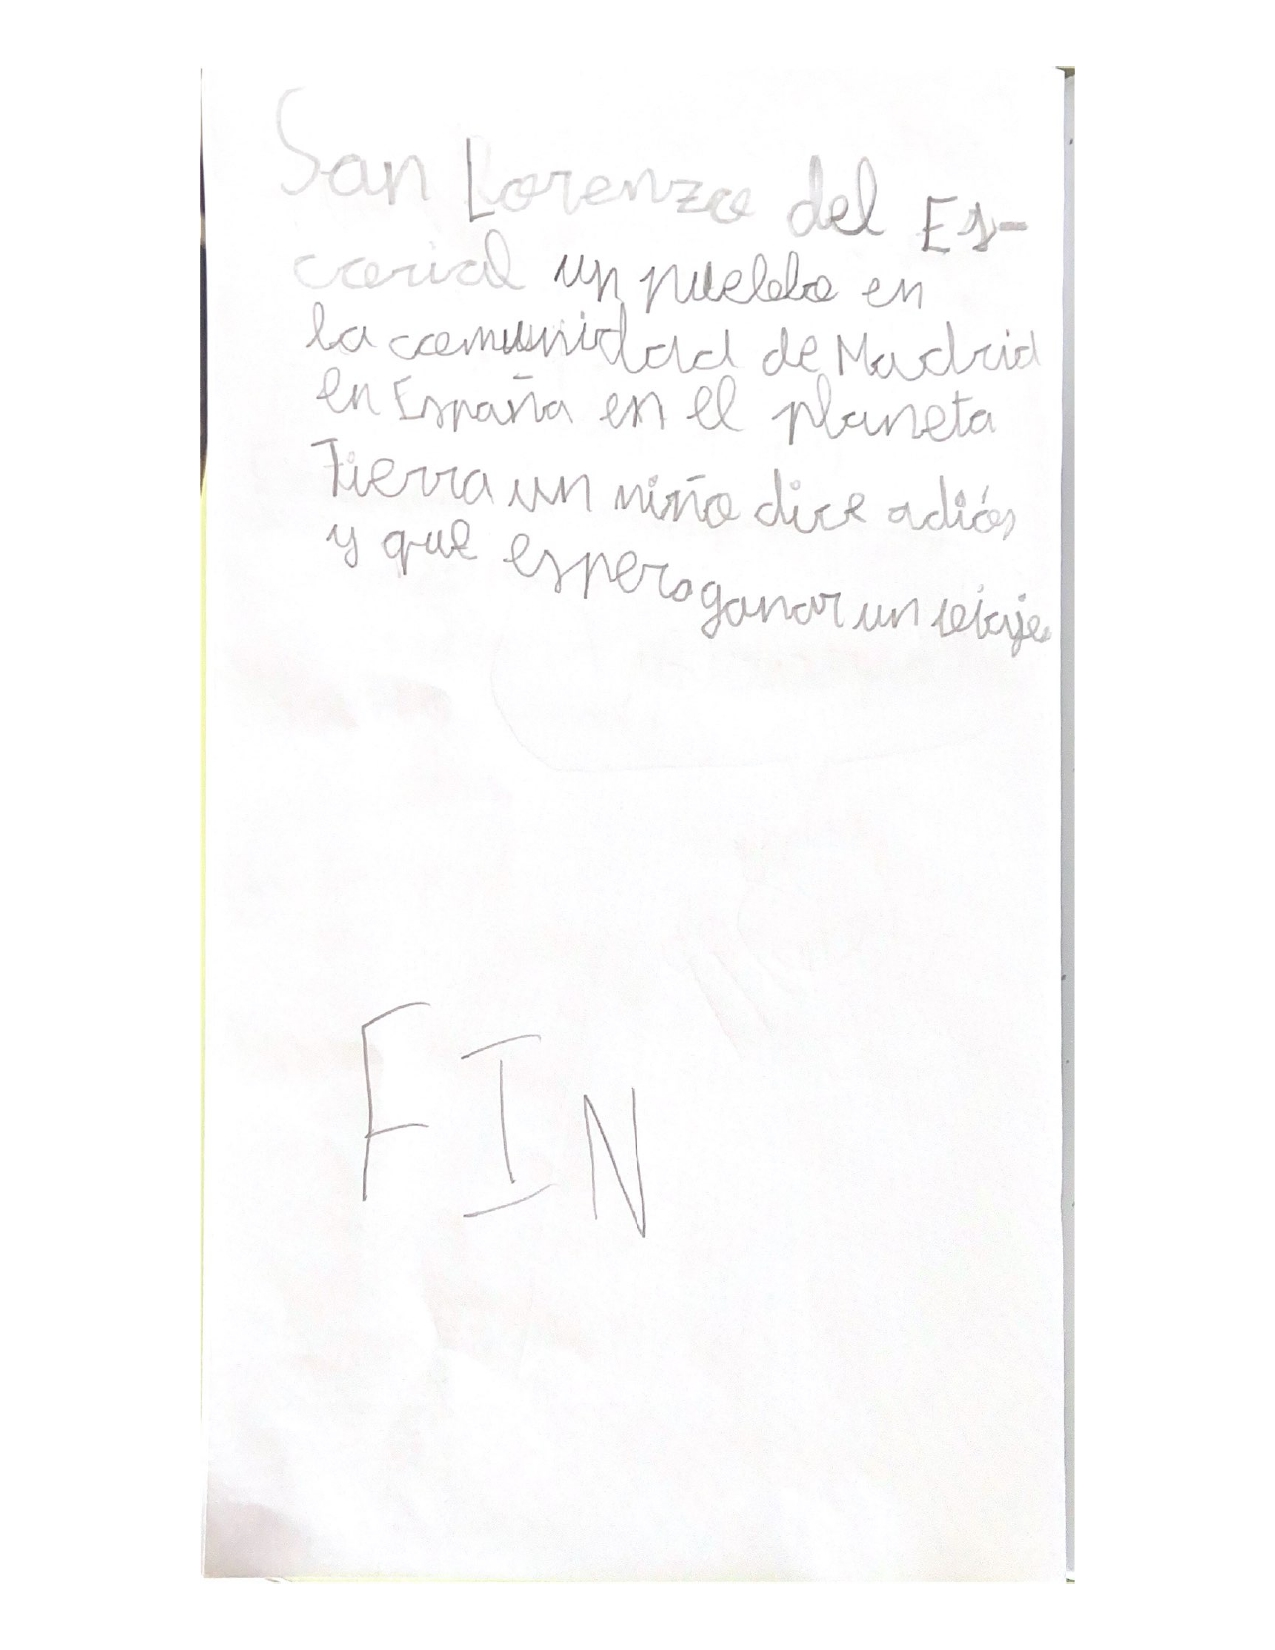 San Lorenzo del Es-
corial un pueblo en
la comunidad de Madrid
en España en el planeta
Tierra un niño dice adiós
y que espero ganar un viaje.
FIN